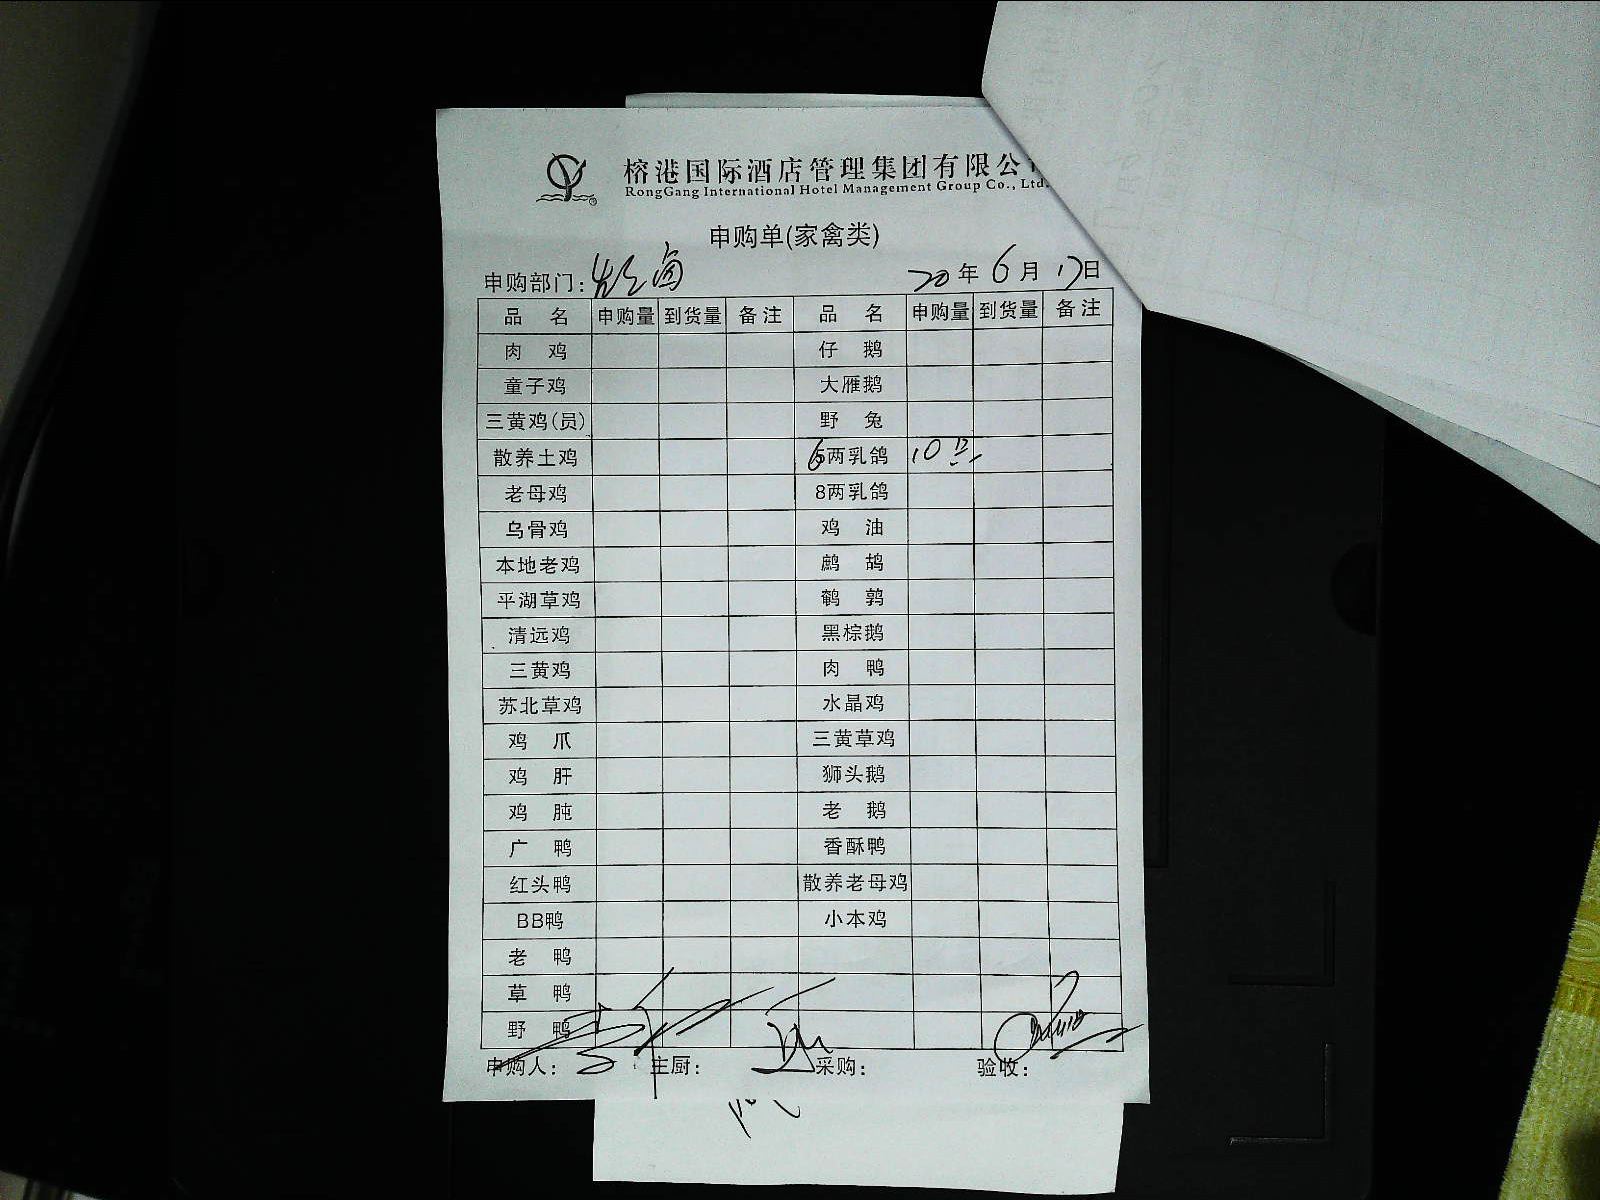 榕港国际酒店管理集团有限公
RongGang International Hotel Management Group Co., Ltd.
申购单(家禽类)
申购部门: 烧卤 20年6月17日
品 名 申购量 到货量 备注 品 名 申购量 到货量 备注
肉 鸡 仔 鹅
童子鸡 大雁鹅
三黄鸡(员) 野 兔
散养土鸡 6两乳鸽 10只
老母鸡 8两乳鸽
乌骨鸡 鸡 油
本地老鸡 鹧 鸪
平湖草鸡 鹌 鹑
清远鸡 黑棕鹅
三黄鸡 肉 鸭
苏北草鸡 水晶鸡
鸡 爪 三黄草鸡
鸡 肝 狮头鹅
鸡 肫 老 鹅
广 鸭 香酥鸭
红头鸭 散养老母鸡
BB鸭 小本鸡
老 鸭
草 鸭
野 鸭
申购人: 主厨: 采购: 验收: